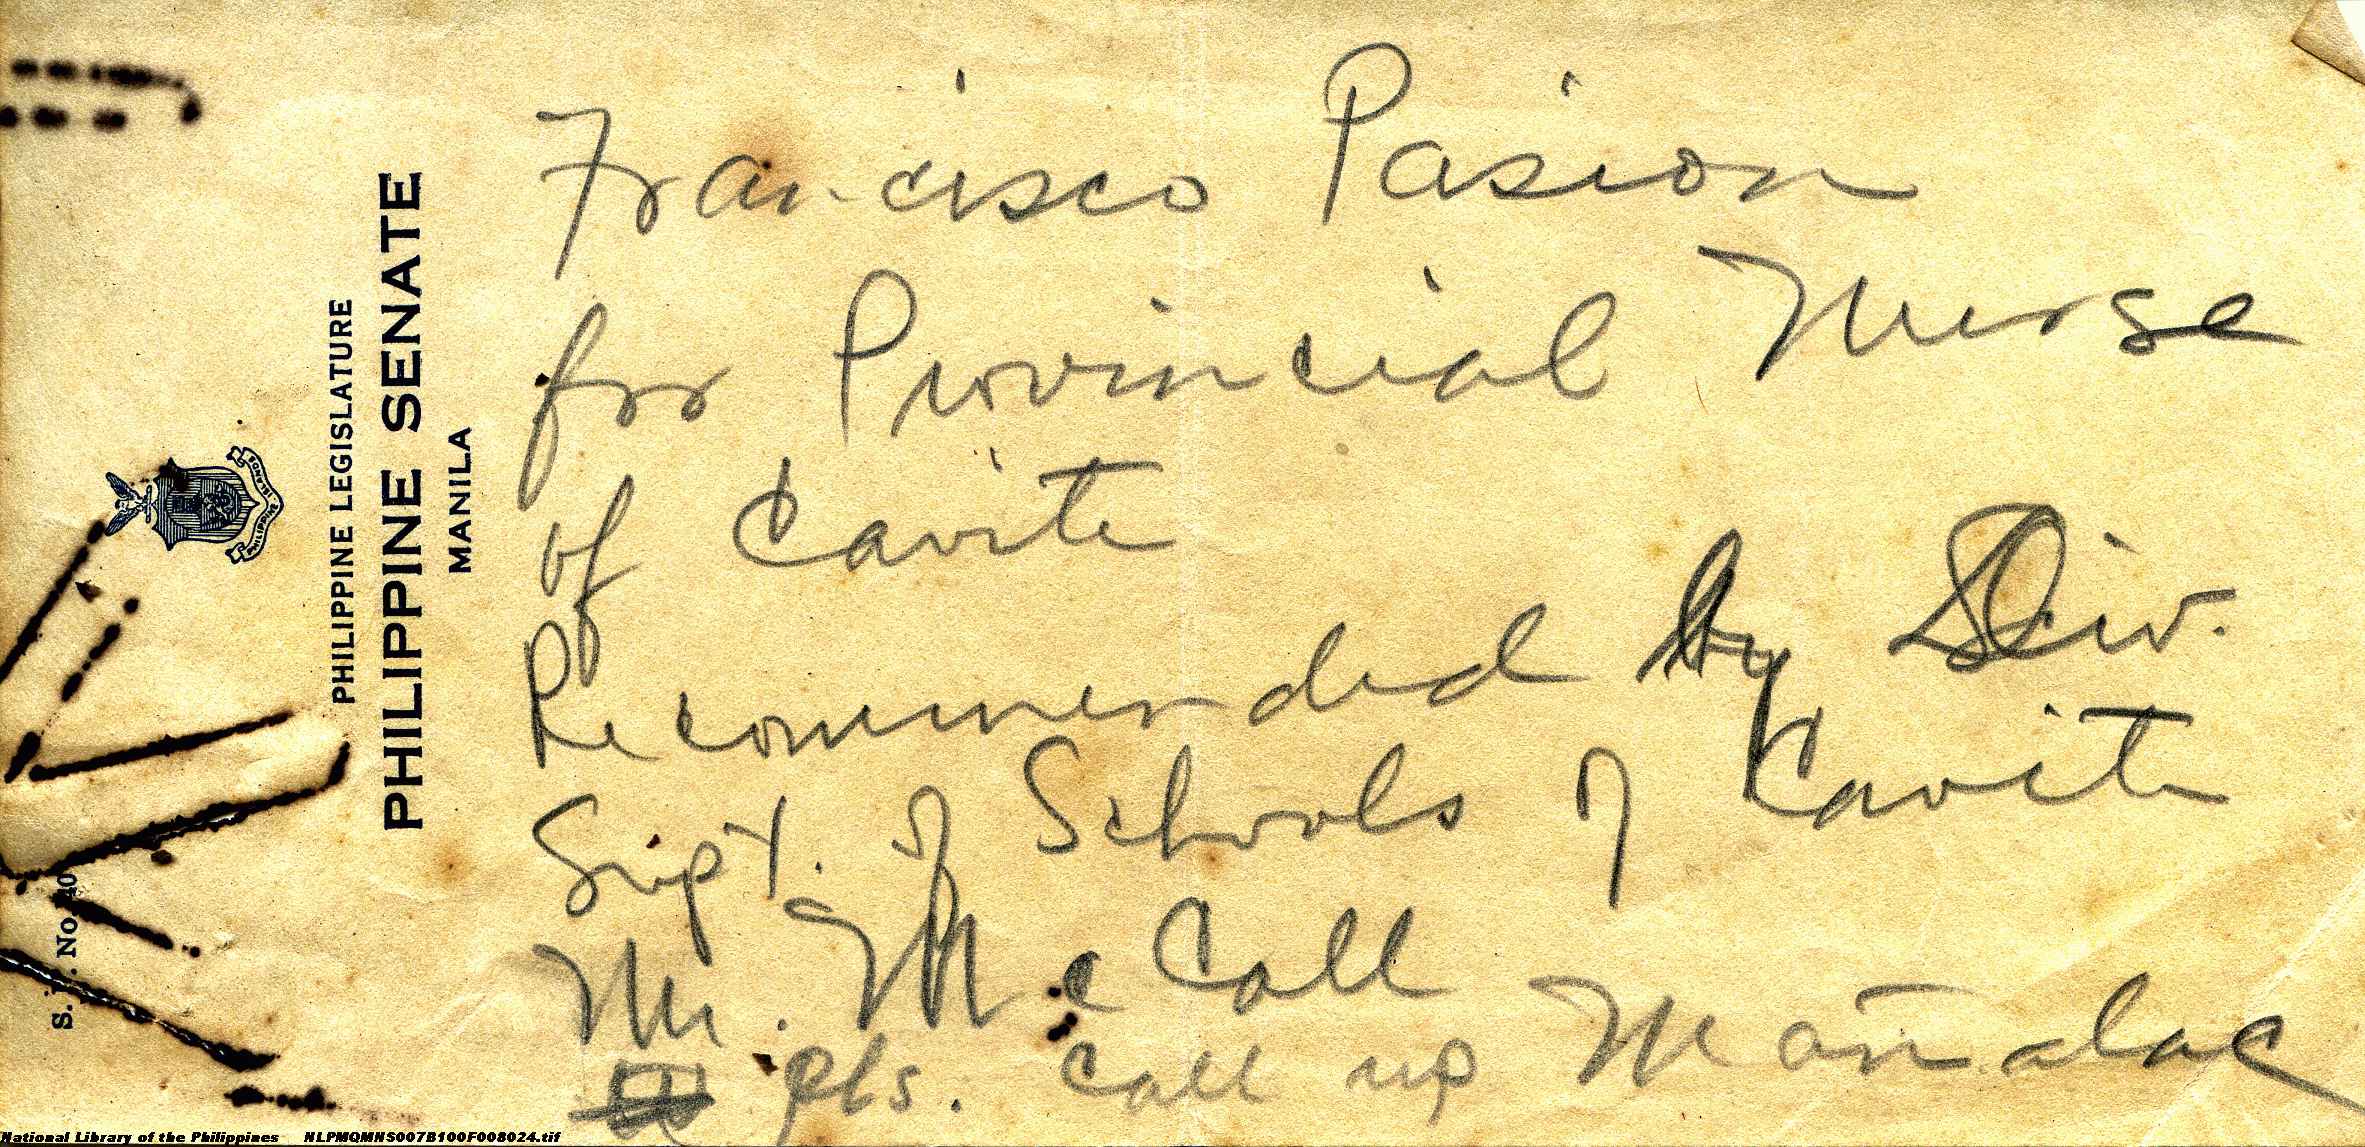 PHILIPPINE ISLANDS
PHILIPPINE LEGISLATURE
PHILIPPINE SENATE
MANILA
Francisco Pasion
for Provincial Nurse
of Cavite
Recommended by Div.
Supt. of Schools of Cavite
Mr. McCall
pls. call up Mañalac
S. No. 40
National Library of the Philippines NLPMQMNS007B100F008024.tif